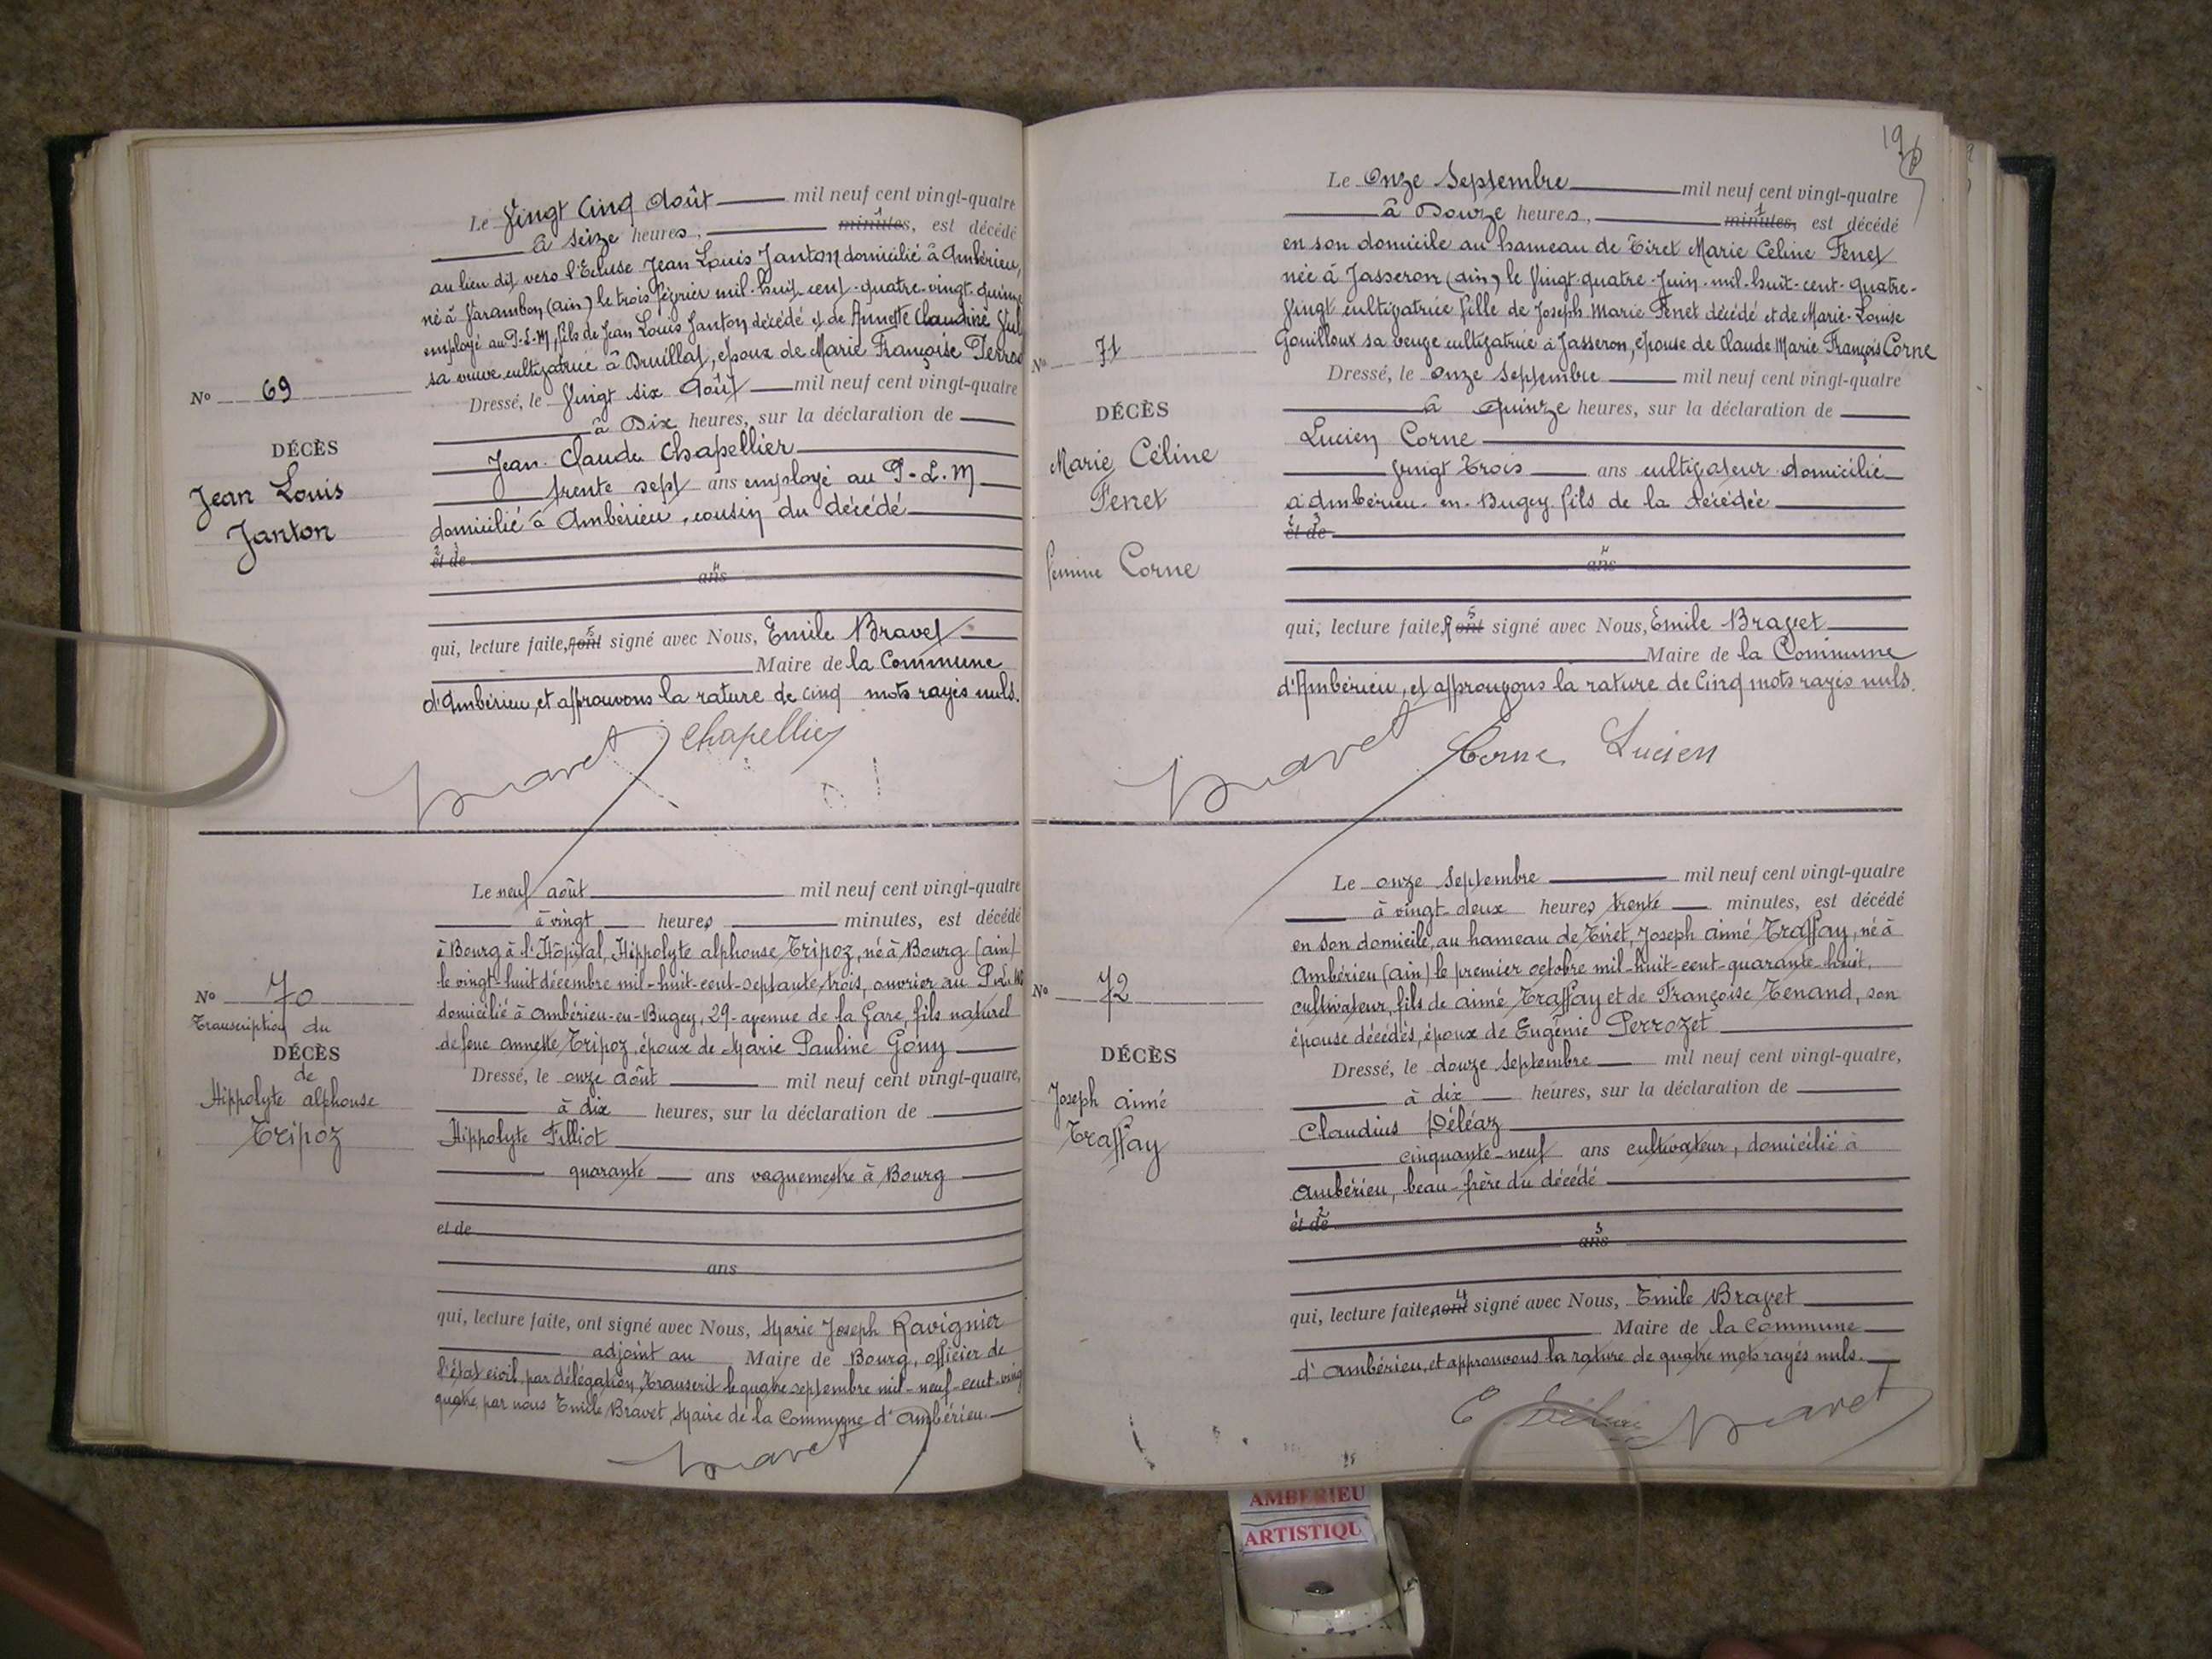 Le Vingt Cinq Août mil neuf cent vingt-quatre
à seize heures, minutes, est décédé
au lieu dit vers l'Ecluse Jean Louis Janton domicilié à Ambérieu,
né à Varambon (ain) le trois février mil-huit-cent-quatre-vingt-quinze
employé au P-L-M, fils de Jean Louis Janton décédé et de Annette Claudine
sa veuve cultivatrice à Druillat, époux de Marie Françoise
Nº 69
Dressé, le Vingt six Août mil neuf cent vingt-quatre
à Dix heures, sur la déclaration de
DÉCÈS
Jean Louis
Janton
Jean Claude Chapellier
trente sept ans employé au P-L.M
domicilié à Ambérieu, cousin du décédé
et de
ans
qui, lecture faite, ont signé avec Nous, Emile Bravet
Maire de la Commune
d'Ambérieu, et approuvons la rature de cinq mots rayés nuls.
Bravet Chapellier
Le neuf août mil neuf cent vingt-quatre
à vingt heures minutes, est décédé
à Bourg à l'Hôpital, Hippolyte alphonse Tripoz, né à Bourg (ain)
le vingt-huit décembre mil-huit-cent-septante trois, ouvrier au P.L.M
domicilié à Ambérieu-en-Bugey, 29-avenue de la Gare, fils naturel
de feue annette Tripoz, époux de Marie Pauline Gony
Nº 70
Transcription du
DÉCÈS
de
Hippolyte alphonse
Tripoz
Dressé, le onze août mil neuf cent vingt-quatre,
à dix heures, sur la déclaration de
Hippolyte Filliot
quarante ans vaguemestre à Bourg
et de
ans
qui, lecture faite, ont signé avec Nous, Marie Joseph Ravignier
adjoint au Maire de Bourg, officier de
l'état civil par délégation, Transcrit le quatre septembre mil-neuf-cent-vingt
quatre, par nous Emile Bravet, Maire de la Commune d'Ambérieu.
Bravet
Le Onze Septembre mil neuf cent vingt-quatre
à Douze heures, minutes, est décédé
en son domicile au hameau de Tiret Marie Céline Fenet
née à Jasseron (ain) le Vingt-quatre-Juin-mil-huit-cent-quatre-
Vingt cultivatrice fille de Joseph Marie Fenet décédé et de Marie-Louise
Gouilloux sa veuve cultivatrice à Jasseron, épouse de Claude Marie François Corne
Nº 71
Dressé, le onze Septembre mil neuf cent vingt-quatre
à Quinze heures, sur la déclaration de
DÉCÈS
Marie Céline
Fenet
femme Corne
Lucien Corne
Vingt Trois ans cultivateur domicilié
à Ambérieu-en-Bugey fils de la décédée
et de
ans
qui, lecture faite, ont signé avec Nous, Emile Bravet
Maire de la Commune
d'Ambérieu, et approuvons la rature de Cinq mots rayés nuls.
Bravet Corne Lucien
Le onze Septembre mil neuf cent vingt-quatre
à vingt-deux heures trente minutes, est décédé
en son domicile, au hameau de Tiret, Joseph aimé Traffay, né à
Ambérieu (ain) le premier octobre mil-huit-cent-quarante-huit,
cultivateur, fils de aimé Traffay et de Françoise Tenand, son
épouse décédés, époux de Eugénie Perrozet
Nº 72
DÉCÈS
Joseph aimé
Traffay
Dressé, le douze Septembre mil neuf cent vingt-quatre,
à dix heures, sur la déclaration de
Claudius Déléaz
cinquante-neuf ans cultivateur, domicilié à
Ambérieu, beau-frère du décédé
et de
ans
qui, lecture faite, ont signé avec Nous, Emile Bravet
Maire de la Commune
d'Ambérieu, et approuvons la rature de quatre mots rayés nuls.
Bravet
AMBERIEU
ARTISTIQU